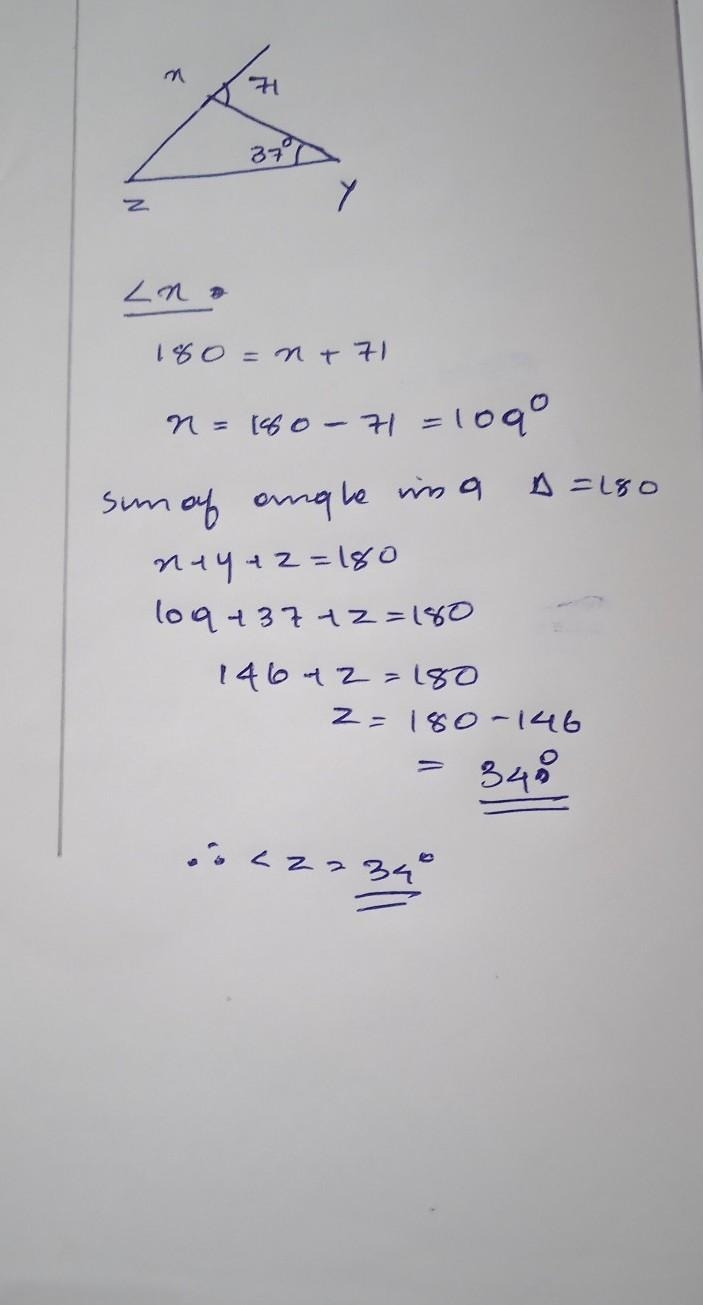 x 71
37°
z y
<x
180 = x + 71
x = 180 - 71 = 109°
sum of angle in a Δ = 180
x + y + z = 180
109 + 37 + z = 180
146 + z = 180
z = 180 - 146
= 34°
∴ < z = 34°